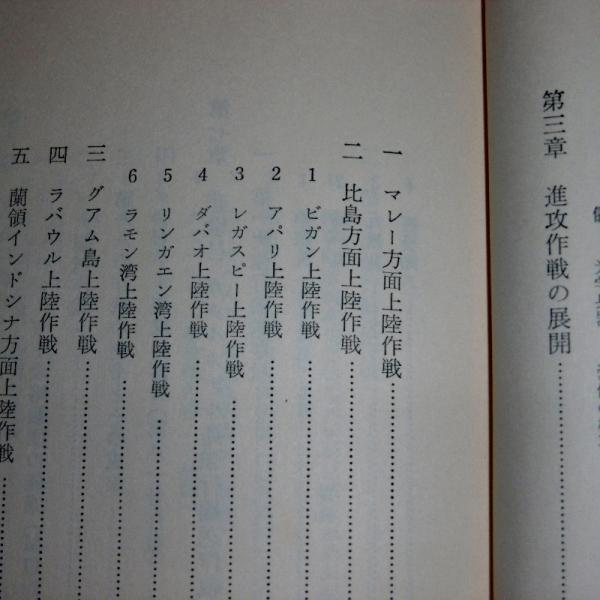 第三章　進攻作戦の展開…………
一　マレー方面上陸作戦…………
二　比島方面上陸作戦…………
1　ビガン上陸作戦…………
2　アパリ上陸作戦…………
3　レガスピー上陸作戦…………
4　ダバオ上陸作戦…………
5　リンガエン湾上陸作戦…………
6　ラモン湾上陸作戦…………
三　グアム島上陸作戦…………
四　ラバウル上陸作戦…………
五　蘭領インドシナ方面上陸作戦…………